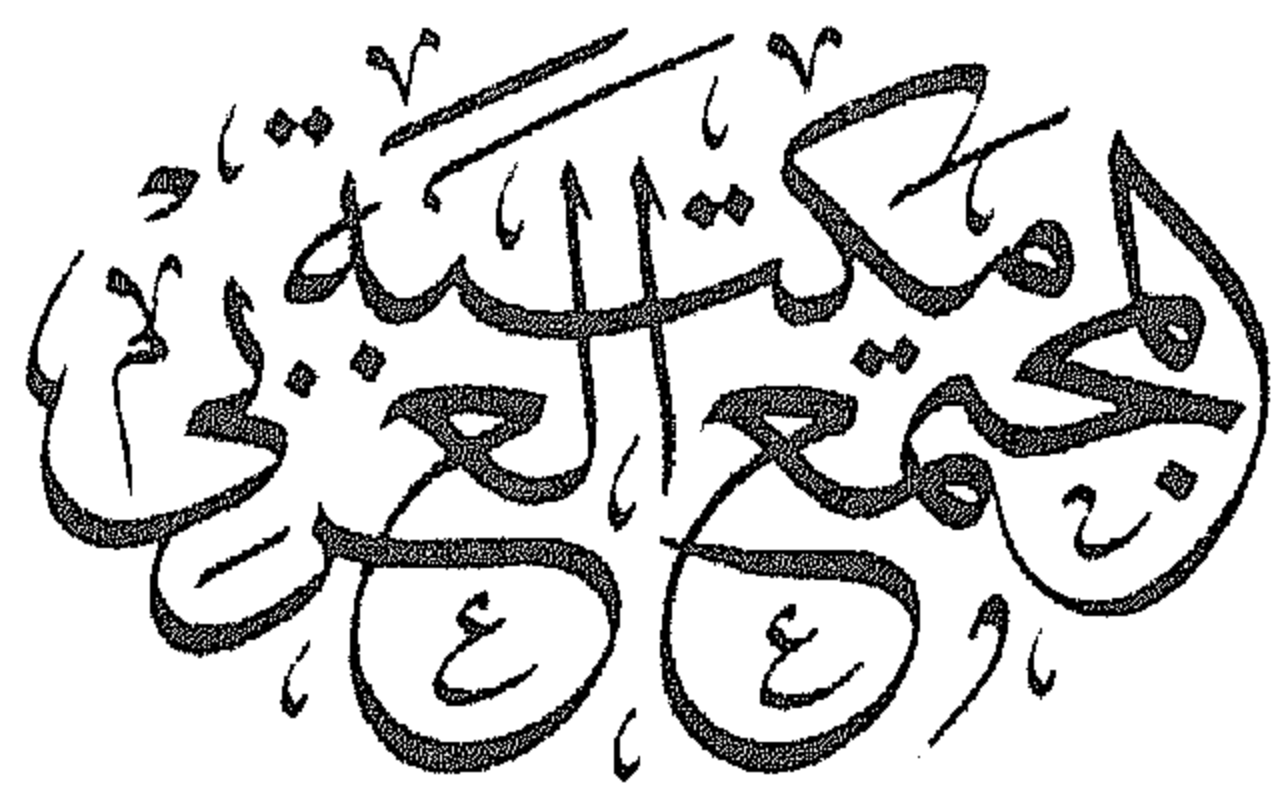 مكتبة
المجتمع العربي